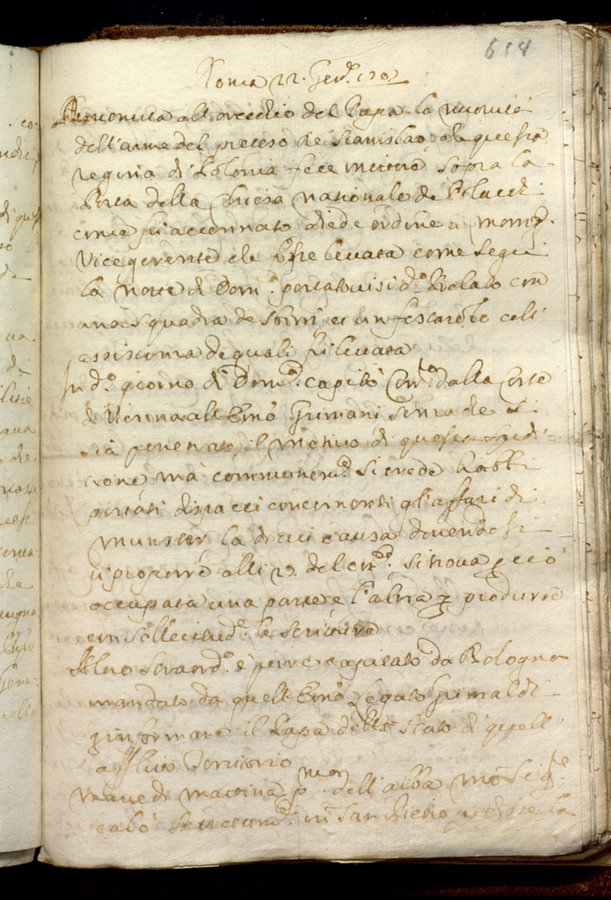 614
Roma 22. Gen.º 170
Pervenuta all'orecchio del Papa la novità
dell'arme del preteso Re Stanislao, che questa
regina di Polonia fece mettere sopra la
Porta della Chiesa nationale de Polacchi
come fù accennato diede ordine à Mons.r
Vicegerente che l'fosse levata come seguì
la notte di Dom.ª portatovisi d.º Prelato con
una squadra de sbirri, et un
de quali fù levata
In d.º giorno di Dom.ª capitò Corr.e dalla Corte
di Vienna all'Emo Grimani senza che si
sia penetrato il motivo di questa spedi
tione mà communem.e si crede habbi
portati dispacci concernenti gli affari di
Munster la di cui causa dovendosi
riproporre alli 27. del corr.e si trova p ciò
occupata una parte e l'altra p produrre
con sollecitud.e le scritture
Altro straord.º è pure capitato da Bologna
mandato da quell'Emo Legato Grimaldi
p informare il Papa dello stato di quell
afflitto Territorio
Martedì mattina p.ma dell'alba Mons.
calò in San Pietro, e disse la